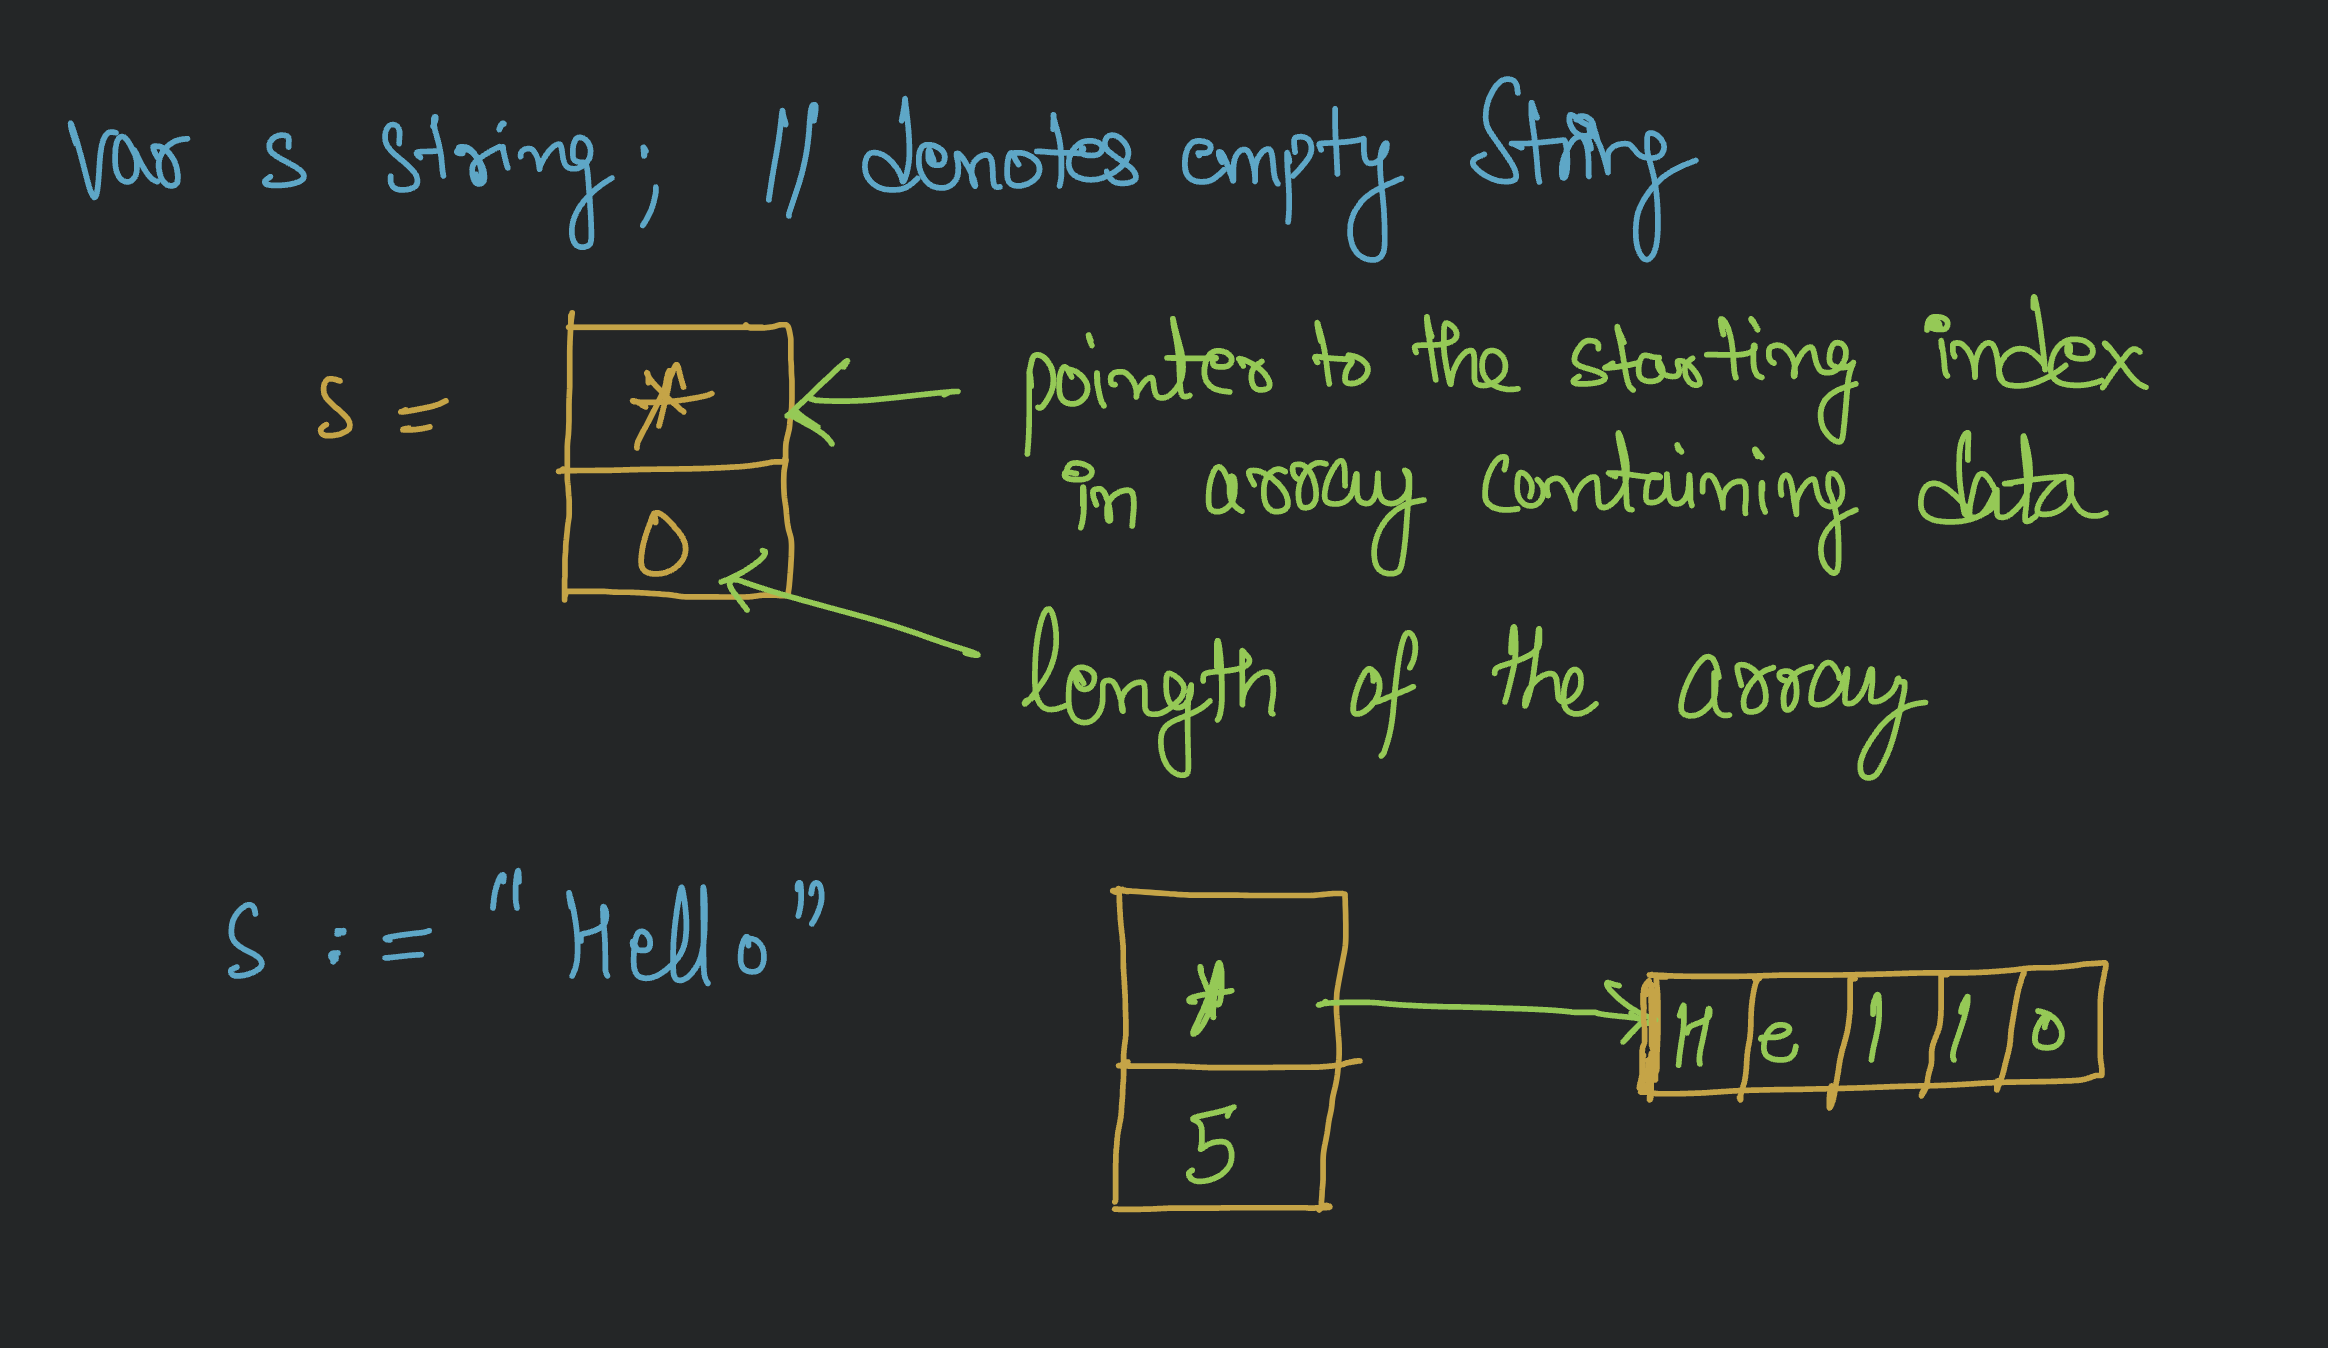 var s string; // denotes empty String
s =
*
0
pointer to the starting index
in array containing data
length of the array
S := "Hello"
*
5
H e l l o